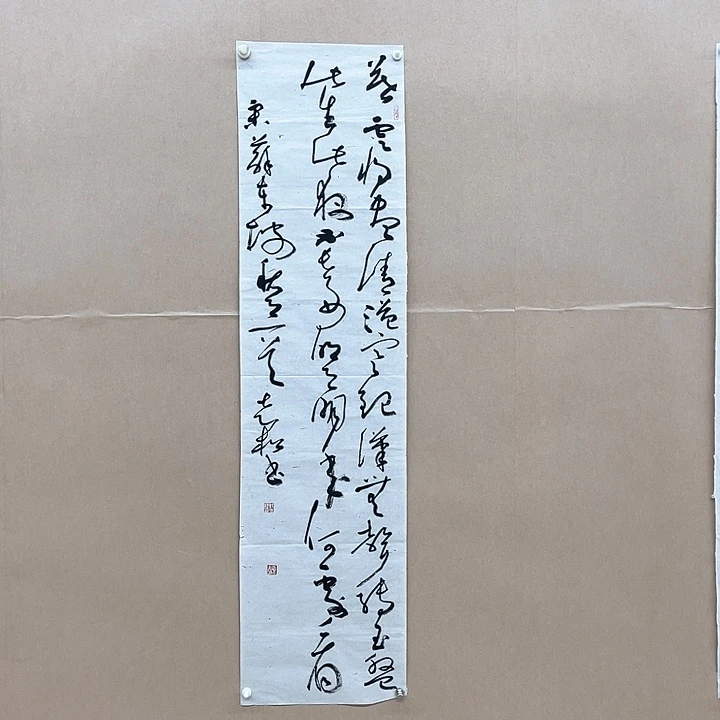 暮雲收盡清溢寒銀漢無聲轉玉盤
此生此夜不長好明月明年何處看
宋蘇東坡一首松書